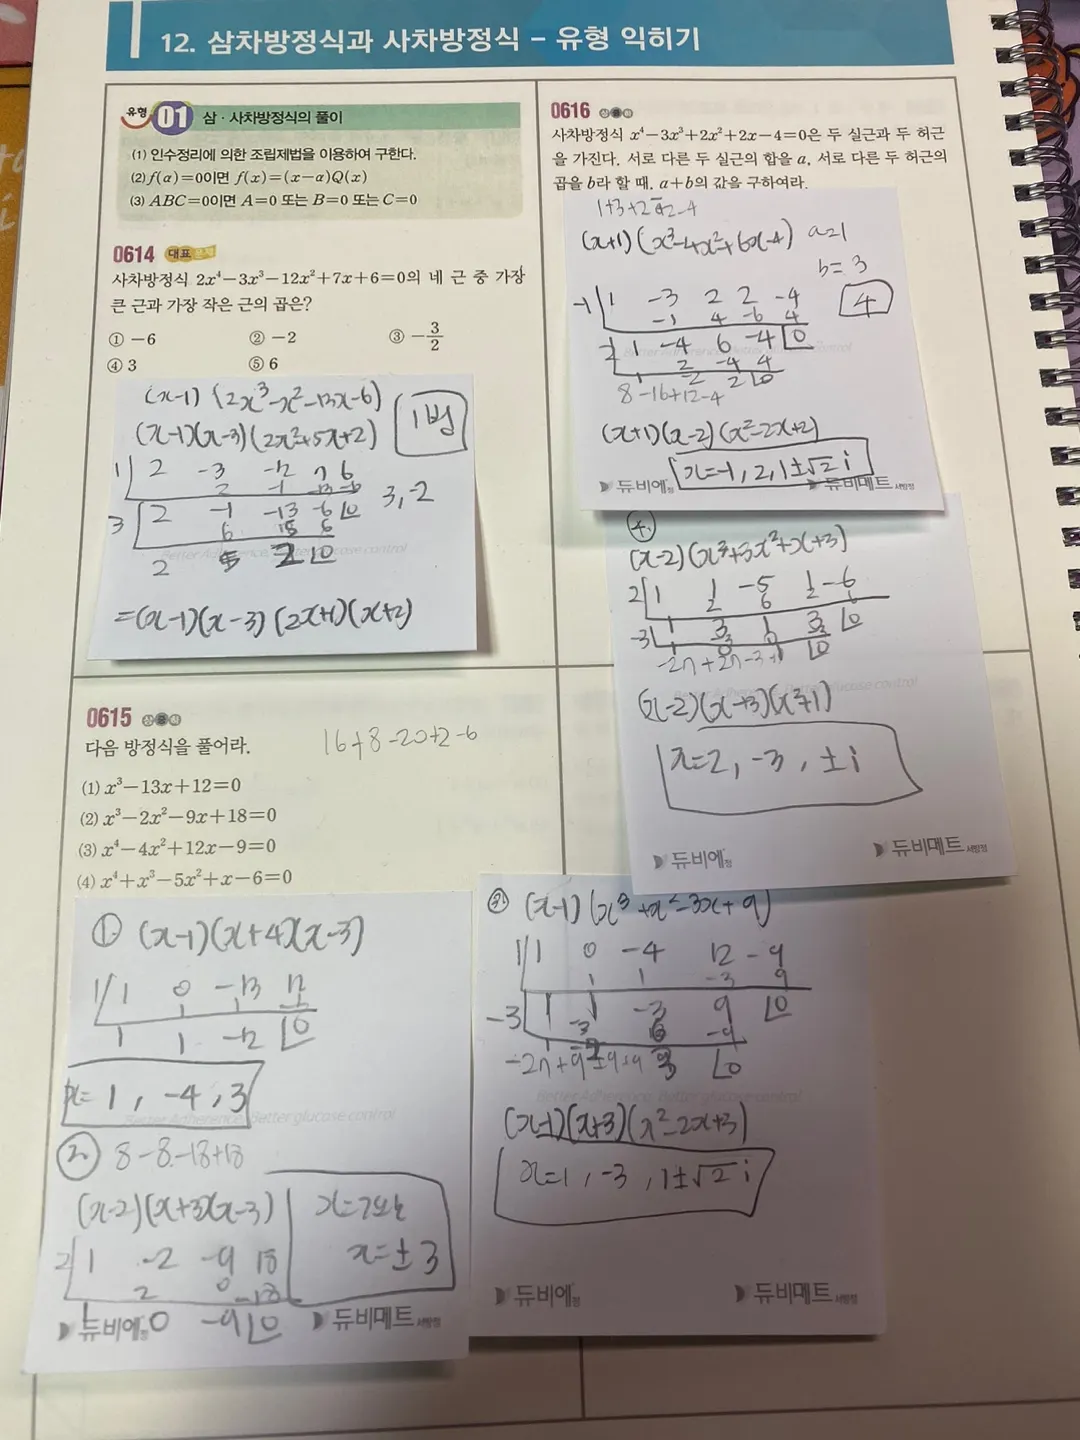 12. 삼차방정식과 사차방정식 - 유형 익히기
유형 01 삼·사차방정식의 풀이
(1) 인수정리에 의한 조립제법을 이용하여 구한다.
(2) f(α)=0이면 f(x)=(x-α)Q(x)
(3) ABC=0이면 A=0 또는 B=0 또는 C=0
0614 대표
사차방정식 2x⁴-3x³-12x²+7x+6=0의 네 근 중 가장
큰 근과 가장 작은 근의 곱은?
① -6 ② -2 ③ -3/2
④ 3 ⑤ 6
(x-1)(2x³-x²-13x-6)
(x-1)(x-3)(2x²+5x+2)
1번
1 2 -3 -12 7 6
2 -1 -13 -6
3 2 -1 -13 -6 0
6 15 6
2 5 2 0
3, -2
=(x-1)(x-3)(2x+1)(x+2)
0615
다음 방정식을 풀어라.
16+8-20+2-6
(1) x³-13x+12=0
(2) x³-2x²-9x+18=0
(3) x⁴-4x²+12x-9=0
(4) x⁴+x³-5x²+x-6=0
① (x-1)(x+4)(x-3)
1 1 0 -13 12
1 1 -12 0
x=1, -4, 3
Better Adherence, Better glucose control
② 8-8-18+18
(x-2)(x+3)(x-3)
x=2 또는
x=±3
2 1 -2 -9 18
2 0 -18
1 0 -9 0
듀비에정 듀비메트서방정
0616
사차방정식 x⁴-3x³+2x²+2x-4=0은 두 실근과 두 허근
을 가진다. 서로 다른 두 실근의 합을 a, 서로 다른 두 허근의
곱을 b라 할 때, a+b의 값을 구하여라.
1+3+2-2-4
(x+1)(x³-4x²+6x-4) a=1
b=3
4
-1 1 -3 2 2 -4
-1 4 -6 4
2 1 -4 6 -4 0
2 -4 4
1 -2 2 0
8-16+12-4
(x+1)(x-2)(x²-2x+2)
x=-1, 2, 1±√2 i
듀비에정 듀비메트서방정
④
(x-2)(x³+3x²+x+3)
2 1 1 -5 1 -6
2 6 2 6
-3 1 3 1 3 0
-3 0 -3
1 0 1 0
(x-2)(x+3)(x²+1)
x=2, -3, ±i
듀비에정 듀비메트서방정
③ (x-1)(x³+x²-3x+9)
1 1 0 -4 12 -9
1 1 -3 9
-3 1 1 -3 9 0
-3 6 -9
-2 3 0
(x-1)(x+3)(x²-2x+3)
x=1, -3, 1±√2 i
듀비에정 듀비메트서방정